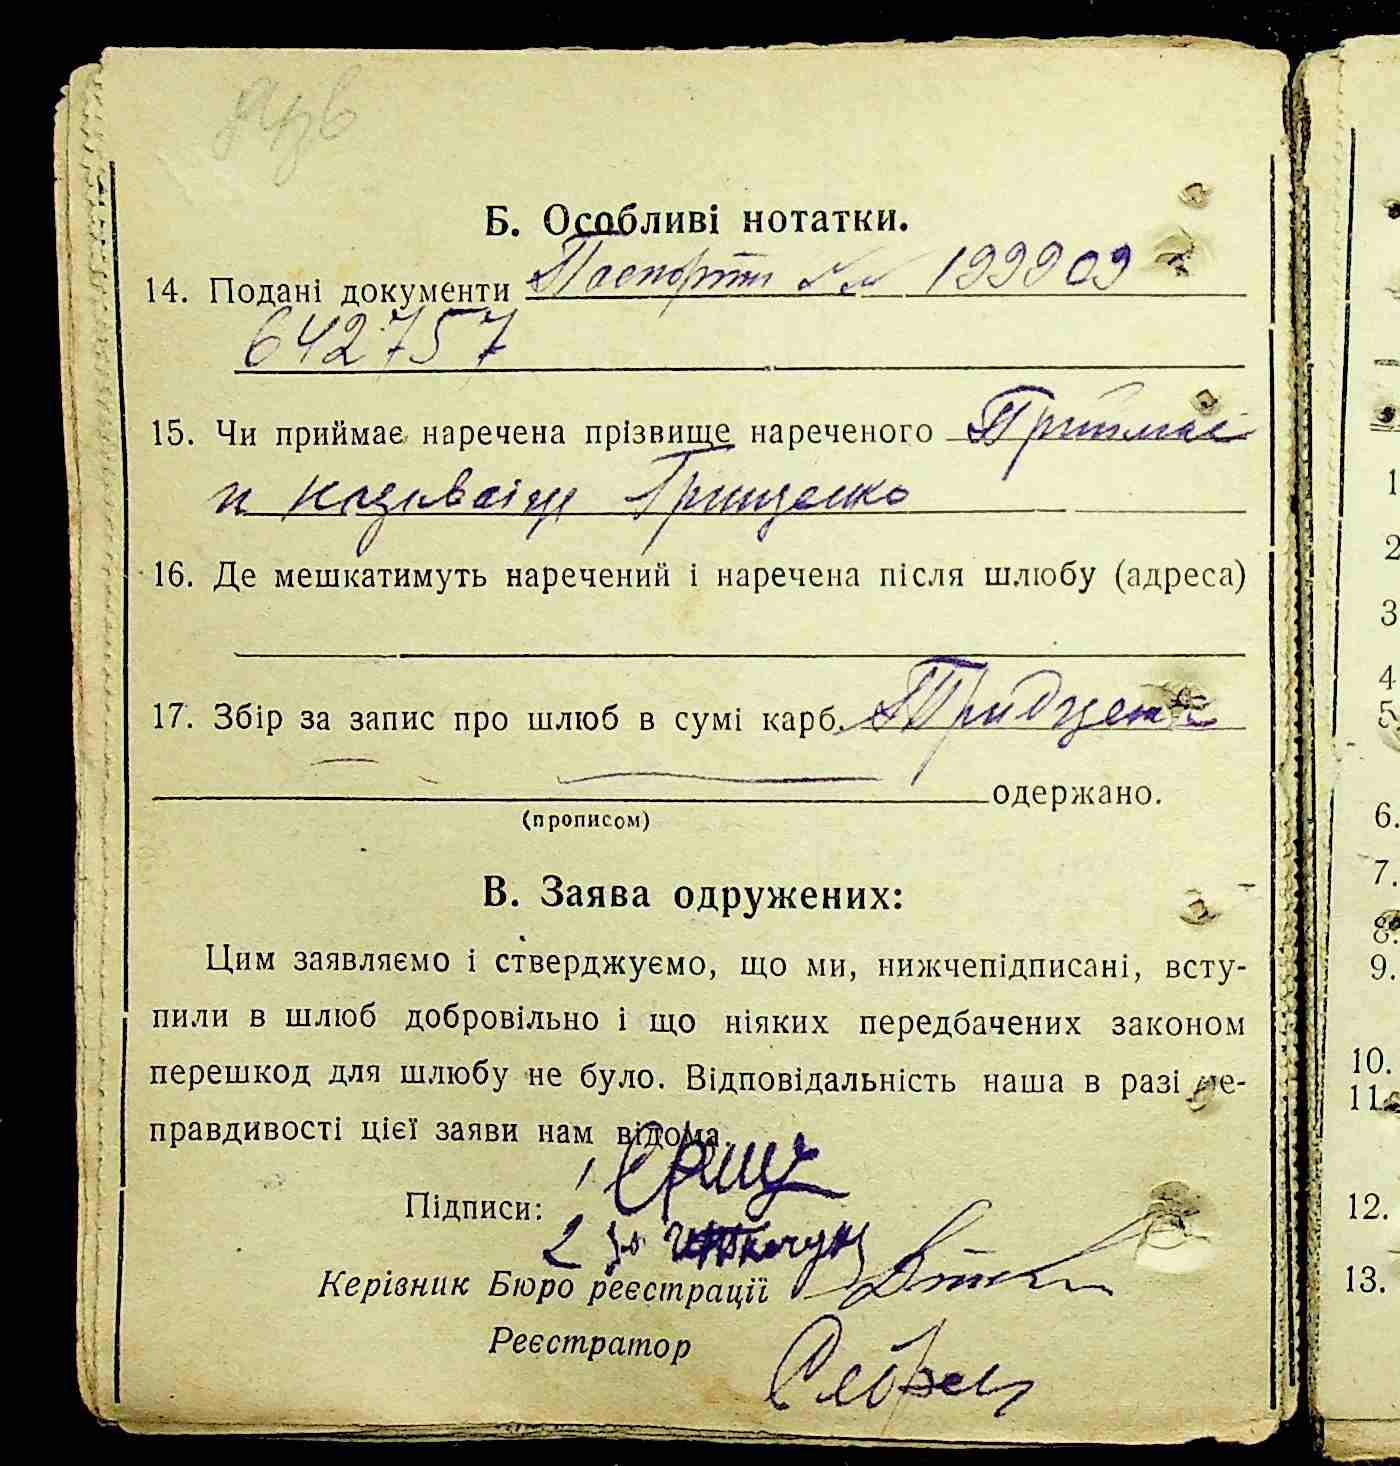 Б. Особливі нотатки.
14. Подані документи Паспорти №№ 199909
642757
15. Чи приймає наречена прізвище нареченого Приймає
и називаіця Грищенко
16. Де мешкатимуть наречений і наречена після шлюбу (адреса)
17. Збір за запис про шлюб в сумі карб. Тридцять
одержано.
(прописом)
В. Заява одружених:
Цим заявляємо і стверджуємо, що ми, нижчепідписані, всту-
пили в шлюб добровільно і що ніяких передбачених законом
перешкод для шлюбу не було. Відповідальність наша в разі не-
правдивості цієї заяви нам відома.
1 Грищ
Підписи:
2
Керівник Бюро реєстрації
Реєстратор
1
2
3
4
5
6.
7.
8.
9.
10.
11.
12.
13.